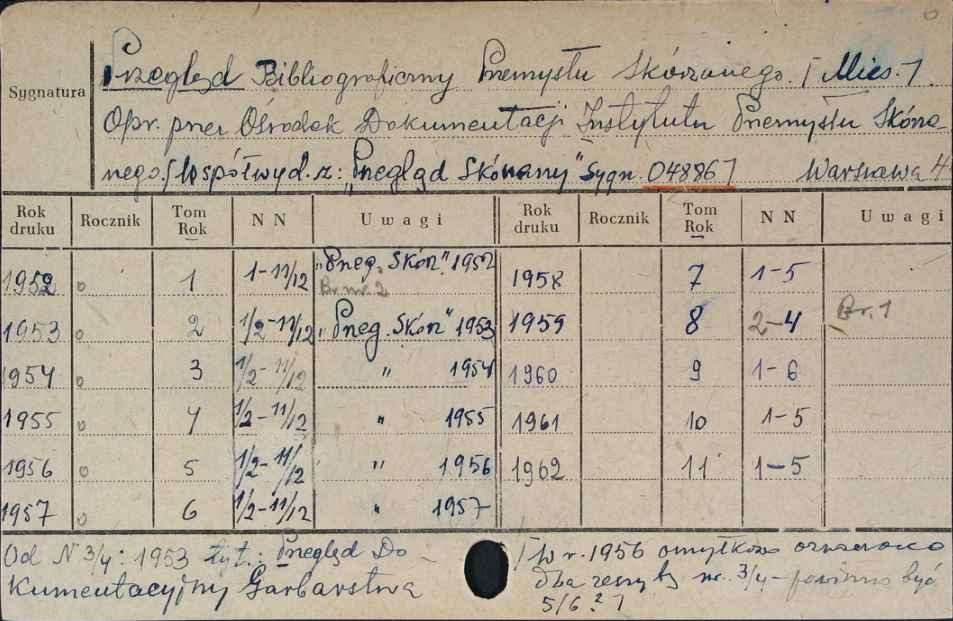 Sygnatura
Przegląd Bibliograficzny Przemysłu Skórzanego. [Mies.]
Opr. przez Ośrodek Dokumentacji Instytutu Przemysłu Skórza-
nego. [Współwyd. z: „Przegląd Skórzany" Sygn. 04886] Warszawa 4°
Rok druku Rocznik Tom Rok N N Uwagi Rok druku Rocznik Tom Rok N N Uwagi
1952 1 1-11/12 „Przeg. Skórz." 1952 1958 7 1-5
Br. nr. 2
1953 2 1/2-11/12 „Przeg. Skórz" 1953 1959 8 2-4 Br. 1
1954 3 1/2-11/12 " 1954 1960 9 1-6
1955 4 1/2-11/12 " 1955 1961 10 1-5
1956 5 1/2-11/12 " 1956 1962 11 1-5
1957 6 1/2-11/12 " 1957
Od N 3/4: 1953 tyt.: Przegląd Do-
kumentacyjny Garbarstwa
[W r. 1956 omyłkowo oznaczono
dwa zeszyty nr. 3/4 - powinno być
5/6?]